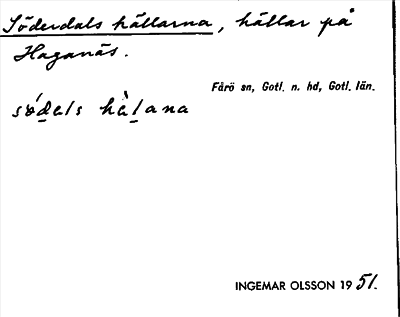 Söderdals hällarna, hällar på
Haganäs.
Fårö sn, Gotl. n. hd, Gotl. län.
só̱dals hà̱lana
INGEMAR OLSSON 1951.